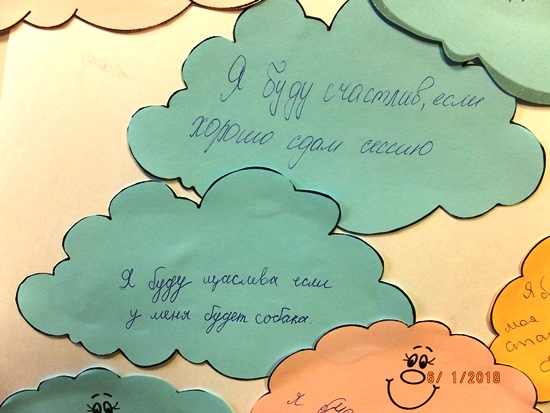 Я буду счастлив, если
хорошо сдам сессию
Я буду щаслева если
у меня будет собака.
Я б
моя
ста
я бу
6/ 1/2018